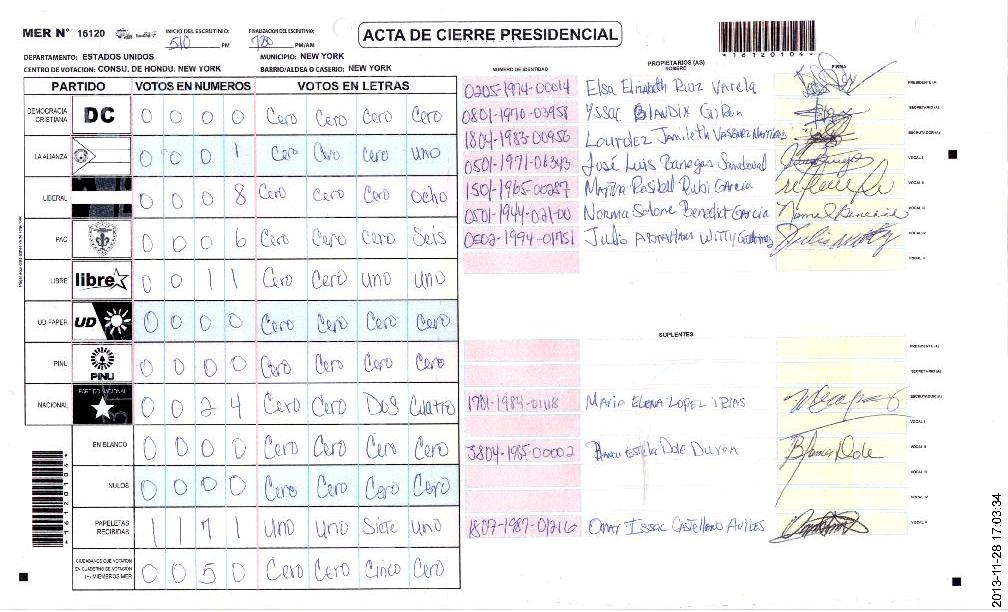 MER N° 16120
INICIO DEL ESCRUTINIO: 510 PM
FINALIZACION DEL ESCRUTINIO: 720 PM/AM
ACTA DE CIERRE PRESIDENCIAL
*16120104*
DEPARTAMENTO: ESTADOS UNIDOS MUNICIPIO: NEW YORK
CENTRO DE VOTACION: CONSU. DE HONDU. NEW YORK BARRIO/ALDEA O CASERIO: NEW YORK
PARTIDO VOTOS EN NUMEROS VOTOS EN LETRAS
DEMOCRACIA CRISTIANA DC 0 0 0 0 Cero Cero Cero Cero
LA ALIANZA 0 0 0 1 Cero Cero Cero uno
LIBERAL 0 0 0 8 Cero Cero Cero Ocho
PAC 0 0 0 6 Cero Cero Cero Seis
LIBRE libre 0 0 1 1 Cero Cero uno uno
UD-FAPER UD 0 0 0 0 Cero Cero Cero Cero
PINU PINU 0 0 0 0 Cero Cero Cero Cero
NACIONAL PARTIDO NACIONAL 0 0 2 4 Cero Cero Dos Cuatro
EN BLANCO 0 0 0 0 Cero Cero Cero Cero
NULOS 0 0 0 0 Cero Cero Cero Cero
PAPELETAS RECIBIDAS 1 1 7 1 uno uno Siete uno
CIUDADANOS QUE VOTARON EN CUADERNO DE VOTACION (+) MIEMBROS MER 0 0 5 0 Cero Cero Cinco Cero
*16120104*
PROPIETARIOS (AS)
NUMERO DE IDENTIDAD NOMBRE FIRMA
0205-1974-00014 Elsa Elizabeth Ruiz Varela PRESIDENTE (A)
0801-1970-03958 Yssac Blandix Giron SECRETARIO (A)
1804-1983-00956 Lourdez Jamileth Vasquez Martinez ESCRUTADOR (A)
0501-1971-06343 José Luis Banegas Sandoval VOCAL I
1501-1965-00287 Maritza Rosibell Rubi Garcia VOCAL II
0501-1944-02100 Norma Solone Benedict Garcia VOCAL III
0502-1994-01751 Julio Abraham Witty VOCAL IV
VOCAL V
SUPLENTES
PRESIDENTE (A)
SECRETARIO (A)
1701-1984-01118 Maria Elena Lopez ESCRUTADOR (A)
VOCAL I
3804-1985-00002 Estela Dole Duron VOCAL II
VOCAL III
VOCAL IV
1807-1987-012116 Omar Issac Castellano Aviles VOCAL V
2013-11-28 17:03:34